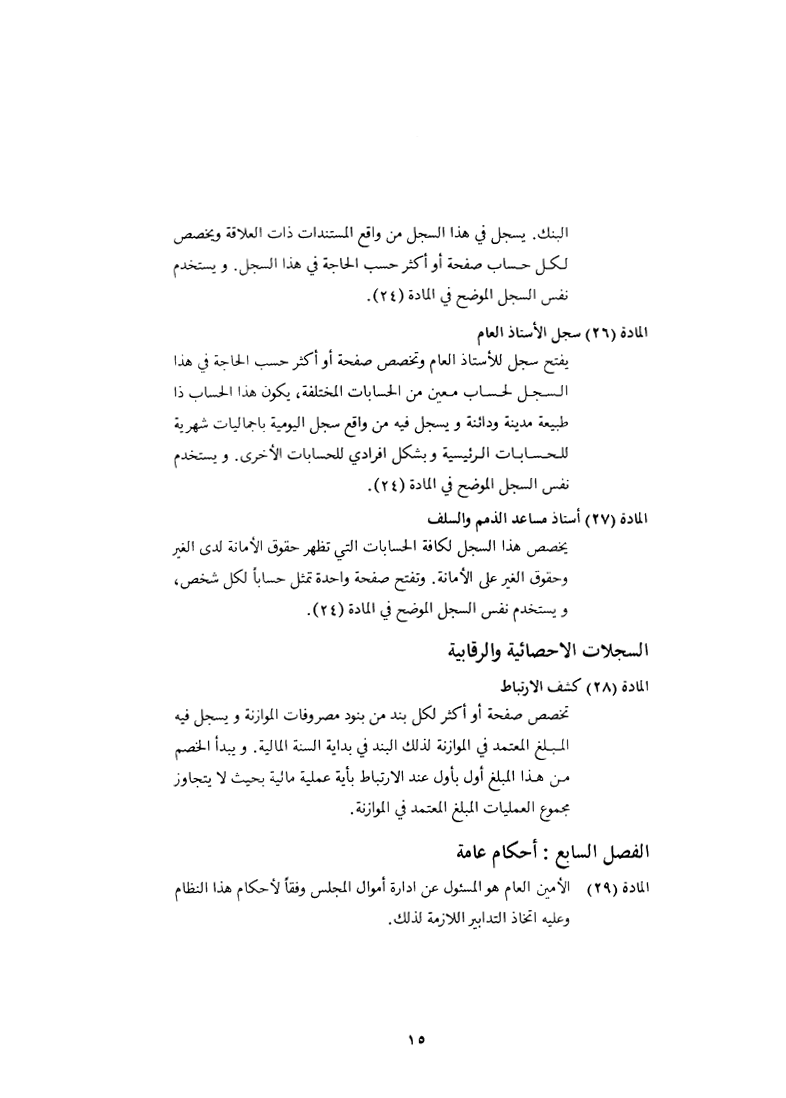 البنك. يسجل في هذا السجل من واقع المستندات ذات العلاقة ويخصص
لكل حساب صفحة أو أكثر حسب الحاجة في هذا السجل. ويستخدم
نفس السجل الموضح في المادة (٢٤).
المادة (٢٦) سجل الأستاذ العام
يفتح سجل للأستاذ العام وتخصص صفحة أو أكثر حسب الحاجة في هذا
السجل لحساب معين من الحسابات المختلفة، يكون هذا الحساب ذا
طبيعة مدينة ودائنة ويسجل فيه من واقع سجل اليومية باجماليات شهرية
للحسابات الرئيسية وبشكل افرادي للحسابات الأخرى. ويستخدم
نفس السجل الموضح في المادة (٢٤).
المادة (٢٧) أستاذ مساعد الذمم والسلف
يخصص هذا السجل لكافة الحسابات التي تظهر حقوق الأمانة لدى الغير
وحقوق الغير على الأمانة. وتفتح صفحة واحدة تمثل حساباً لكل شخص،
ويستخدم نفس السجل الموضح في المادة (٢٤).
السجلات الاحصائية والرقابية
المادة (٢٨) كشف الارتباط
تخصص صفحة أو أكثر لكل بند من بنود مصروفات الموازنة ويسجل فيه
المبلغ المعتمد في الموازنة لذلك البند في بداية السنة المالية. ويبدأ الخصم
من هذا المبلغ أول بأول عند الارتباط بأية عملية مالية بحيث لا يتجاوز
مجموع العمليات المبلغ المعتمد في الموازنة.
الفصل السابع : أحكام عامة
المادة (٢٩) الأمين العام هو المسئول عن ادارة أموال المجلس وفقاً لأحكام هذا النظام
وعليه اتخاذ التدابير اللازمة لذلك.
١٥